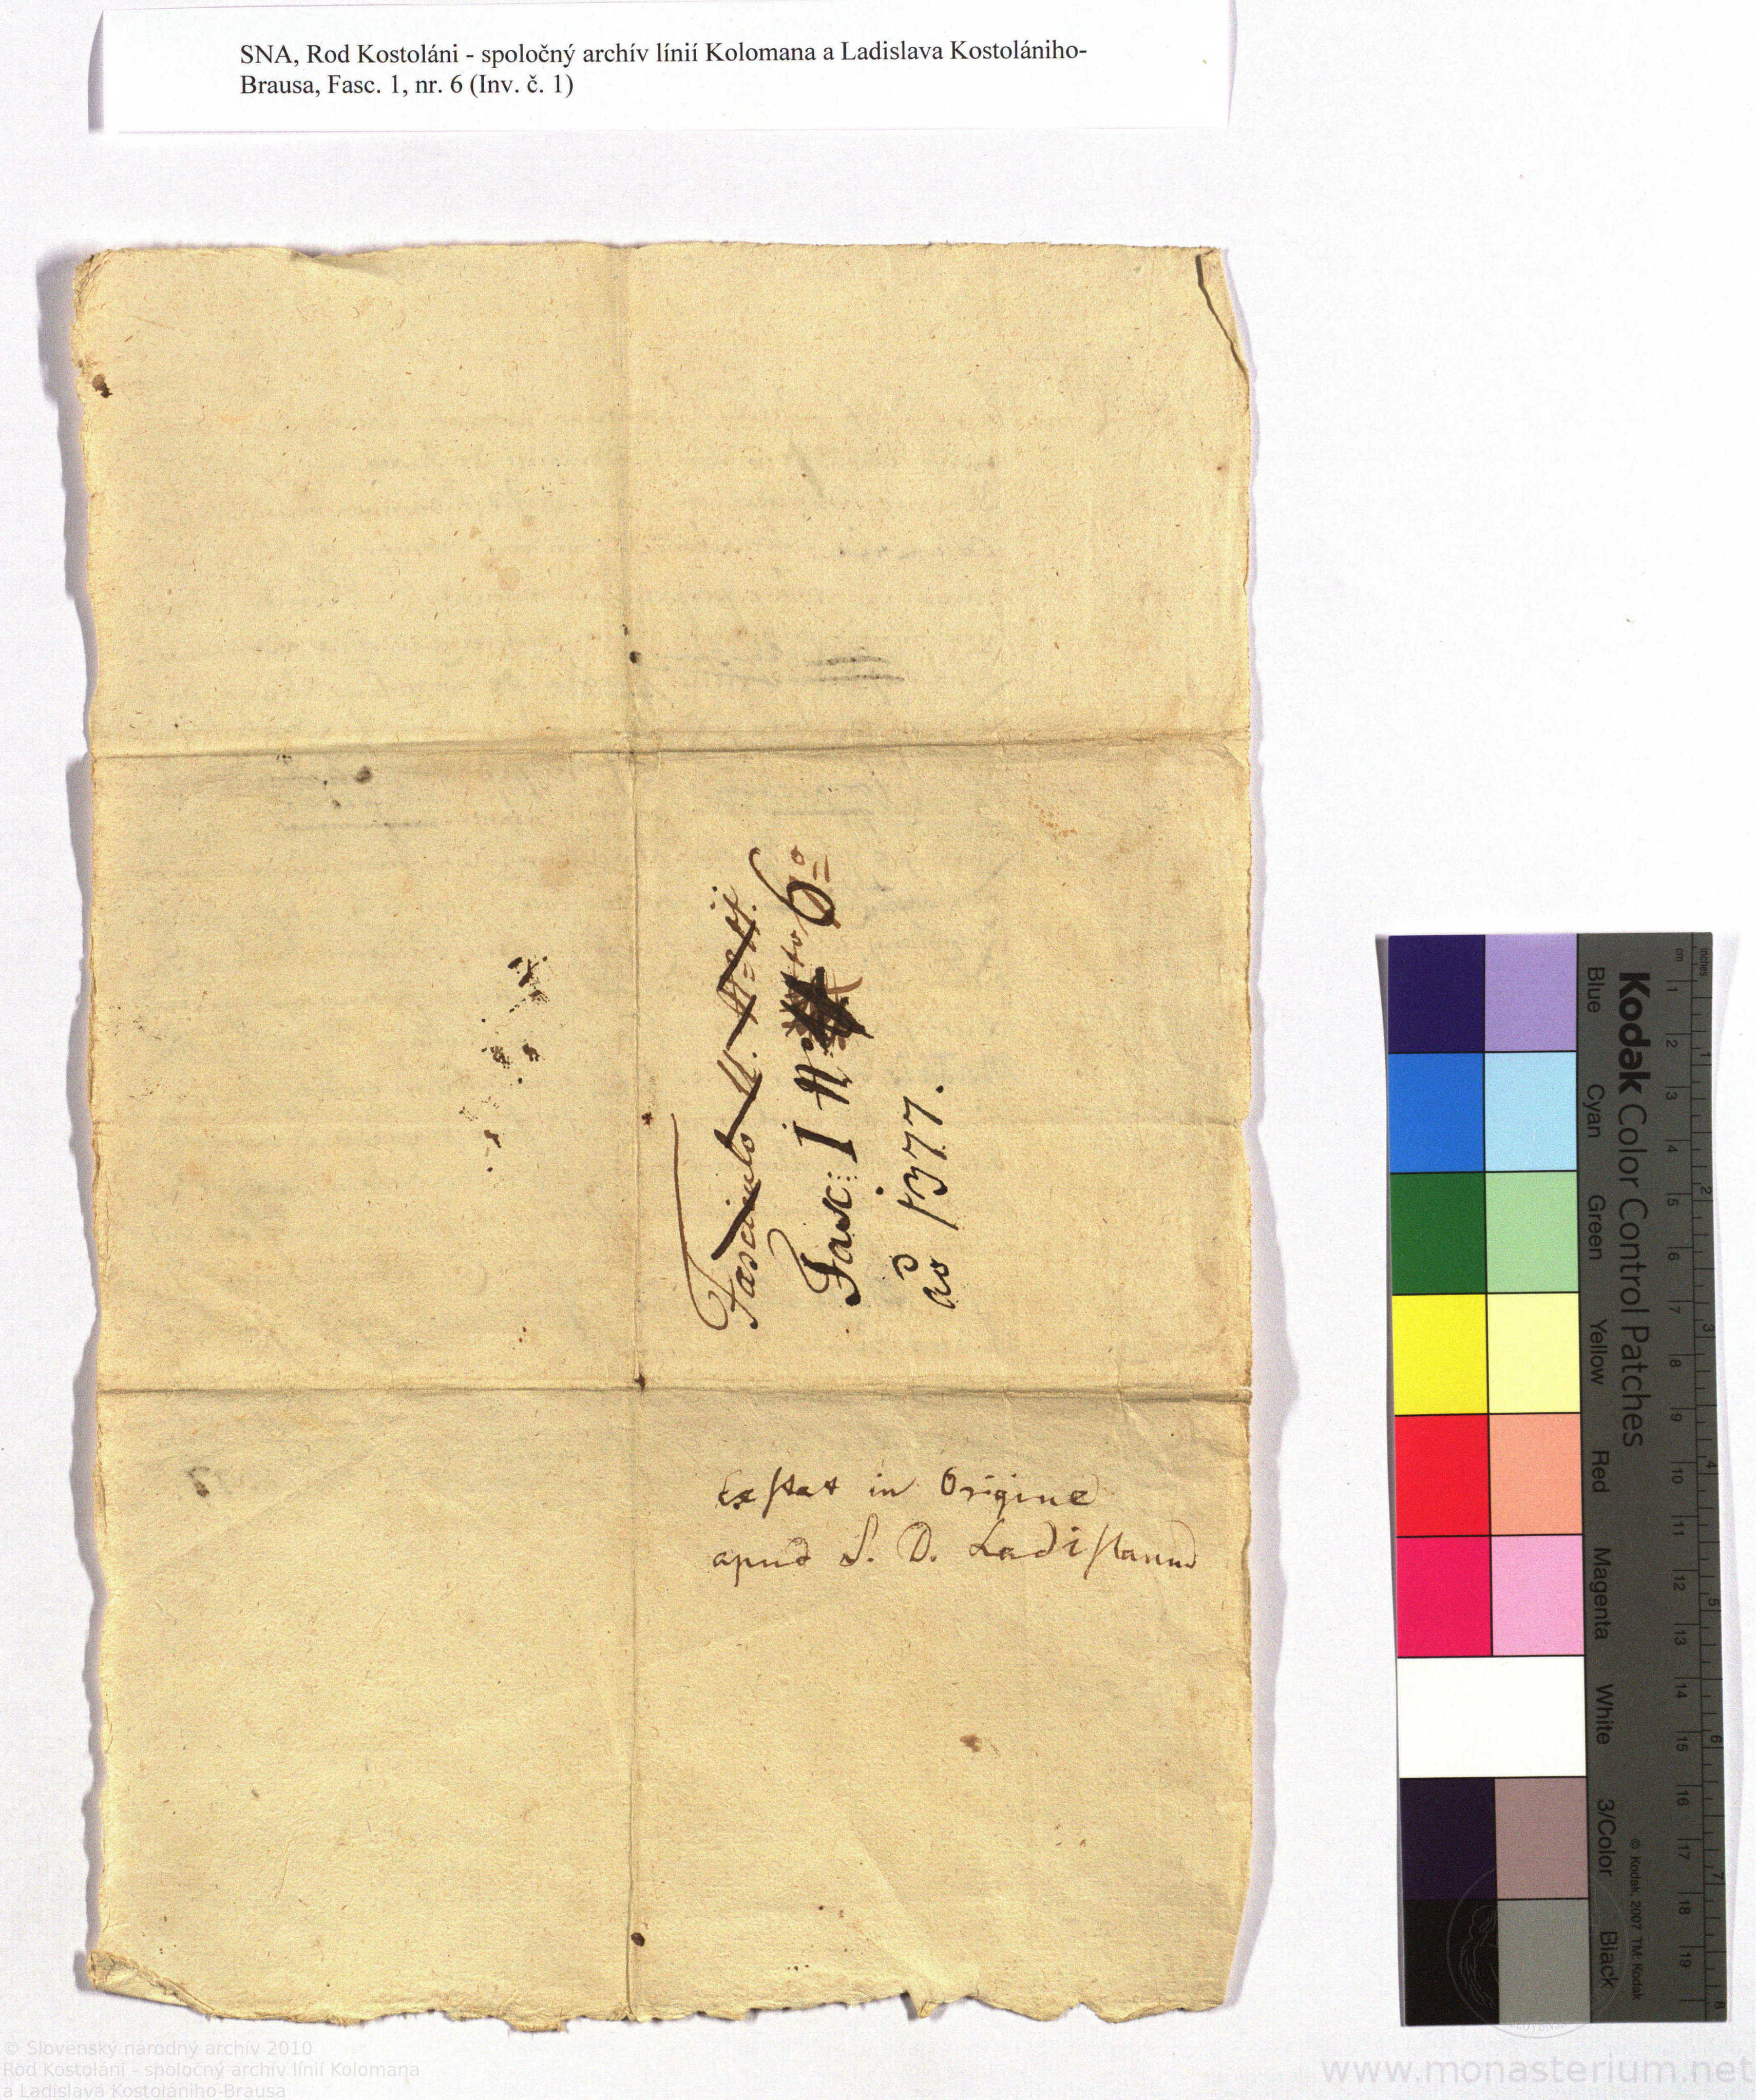 SNA, Rod Kostoláni - spoločný archív línií Kolomana a Ladislava Kostolániho-
Brausa, Fasc. 1, nr. 6 (Inv. č. 1)
Fasciculo
Fasc: I Nº 6º
aõ 1377.
Exstat in Origine
apud S. D. Ladislaum
Kodak Color Control Patches
Blue Cyan Green Yellow Red Magenta White 3/Color Black
© Kodak, 2007 TM: Kodak
inches 1 2 3 4 5 6 7 8
cm 1 2 3 4 5 6 7 8 9 10 11 12 13 14 15 16 17 18 19
© Slovenský národný archív 2010
Rod Kostoláni - spoločný archív línií Kolomana
a Ladislava Kostolániho-Brausa
www.monasterium.net